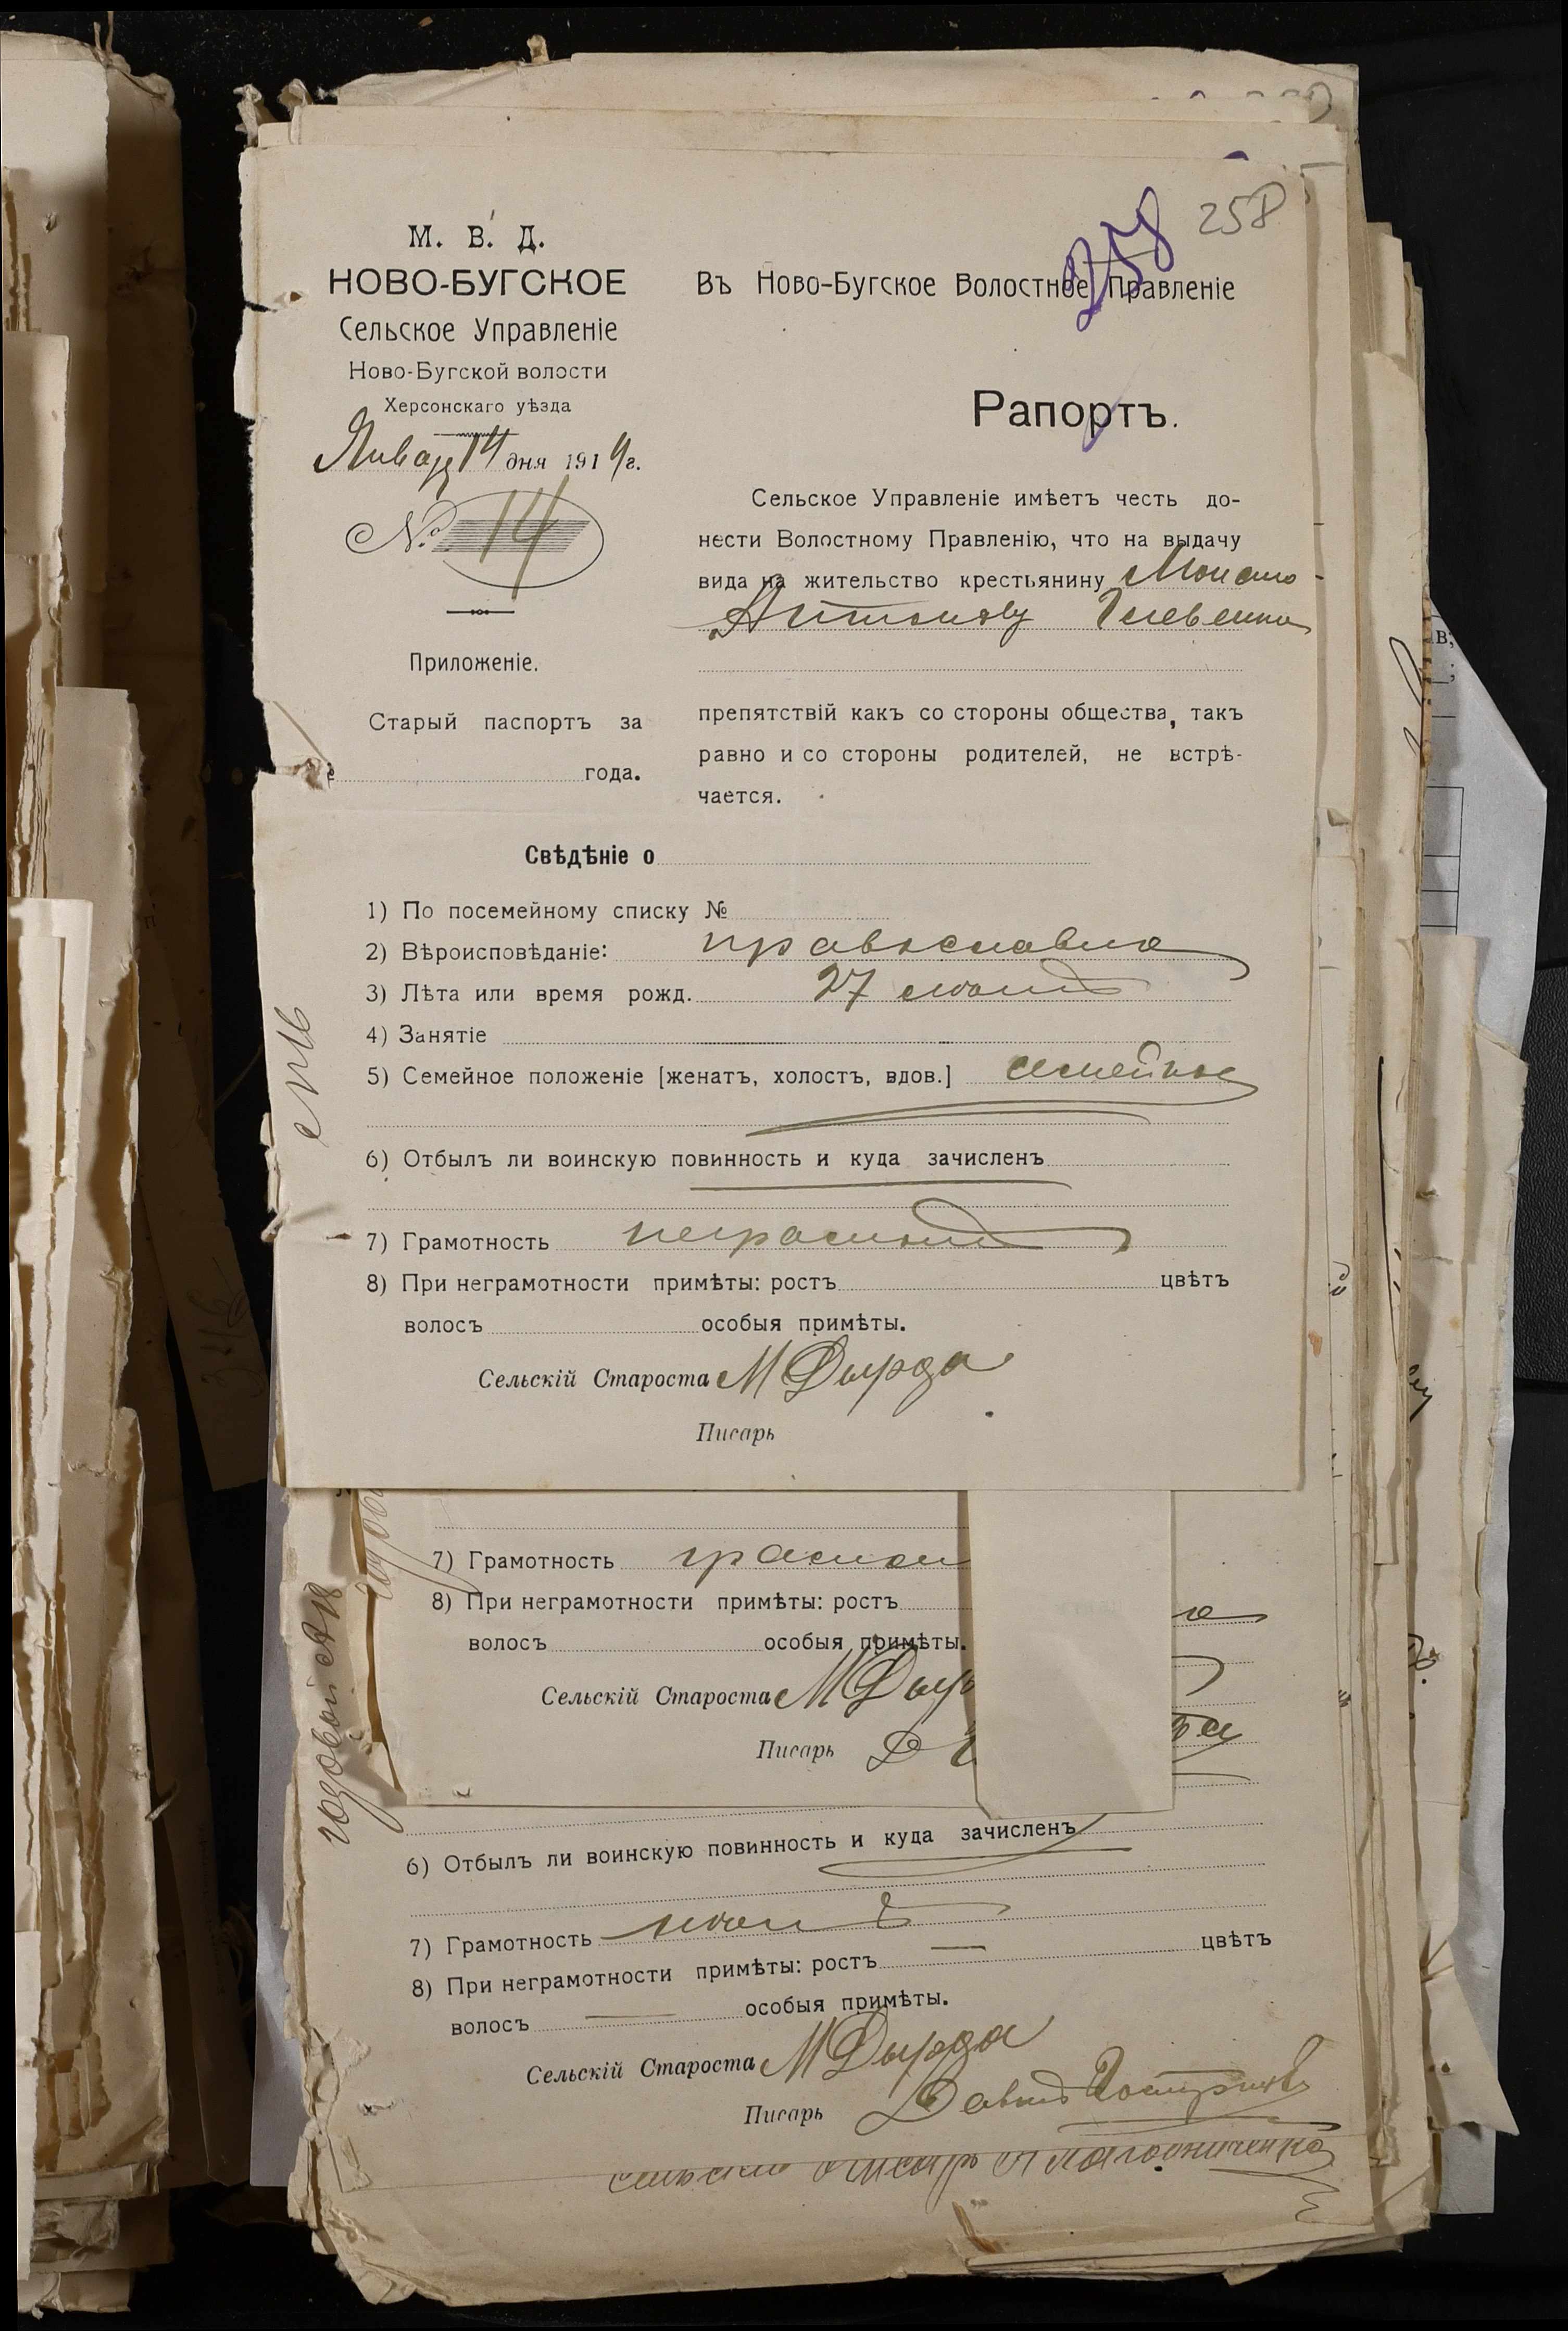 258
258
М. В. Д.
НОВО-БУГСКОЕ
Сельское Управленіе
Ново-Бугской волости
Херсонскаго уѣзда
Январ 14 дня 1914г.
№ 14
Приложеніе.
Старый паспортъ за
года.
Въ Ново-Бугское Волостное Правленіе
Рапортъ.
Сельское Управленіе имѣетъ честь до-
нести Волостному Правленію, что на выдачу
вида на жительство крестьянину
Антонову
препятствій какъ со стороны общества, такъ
равно и со стороны родителей, не встрѣ-
чается.
Свѣдѣніе о
1) По посемейному списку №
2) Вѣроисповѣданіе: православна
3) Лѣта или время рожд. 27
4) Занятіе
5) Семейное положеніе [женатъ, холостъ, вдов.] семейное
6) Отбылъ ли воинскую повинность и куда зачисленъ
7) Грамотность неграмотн
8) При неграмотности примѣты: ростъ цвѣтъ
волосъ особыя примѣты.
Сельскій Староста М Дырда
Писарь
7) Грамотность грамотн
8) При неграмотности примѣты: ростъ
волосъ особыя примѣты.
Сельскій Староста М Дыр
Писарь Д
годовый №18
6) Отбылъ ли воинскую повинность и куда зачисленъ
7) Грамотность
8) При неграмотности примѣты: ростъ — цвѣтъ
волосъ — особыя примѣты.
Сельскій Староста М Дырда
Писарь Давид